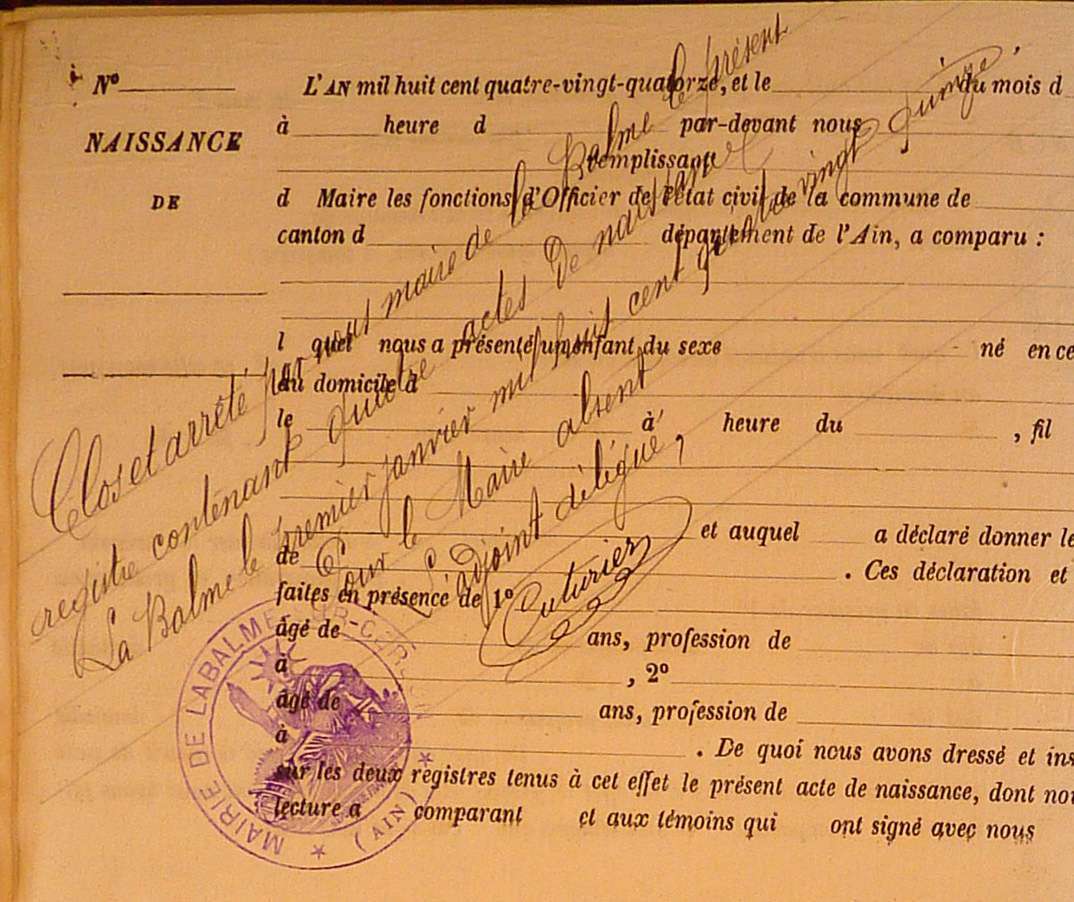 N° L'AN mil huit cent quatre-vingt-quatorze, et le du mois d
NAISSANCE
DE
à heure d par-devant nous
remplissant
d Maire les fonctions d'Officier de l'état civil de la commune de
canton d département de l'Ain, a comparu :
l quel nous a présenté un enfant du sexe né en ce
au domicile d
le à heure du , fil
et auquel a déclaré donner le
de . Ces déclaration et
faites en présence de 1°
âgé de ans, profession de
à , 2°
âgé de ans, profession de
à . De quoi nous avons dressé et ins
sur les deux registres tenus à cet effet le présent acte de naissance, dont nou
lecture a comparant et aux témoins qui ont signé avec nous
Clos et arrêté par nous maire de la Balme le présent
registre contenant quatre actes de naissance
La Balme le premier janvier mil huit cent quatre vingt quinze.
Pour le Maire absent
L'adjoint délégué,
Cuturier
MAIRIE DE LABALME
(AIN)